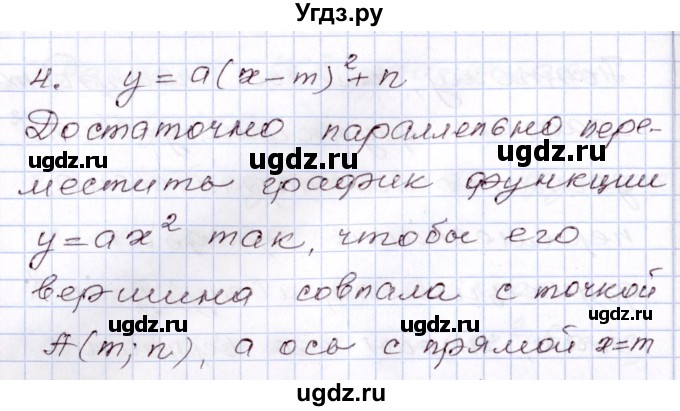 Угдз.ру
4. y = a(x-m)²+n
Достаточно параллельно пере-
местить график функции
y=ax² так, чтобы его
вершина совпала с точкой
A(m; n), а ось с прямой x=m
ugdz.ru ugdz.ru ugdz.ru
ugdz.ru ugdz.ru
ugdz.ru ugdz.ru
ugdz.ru